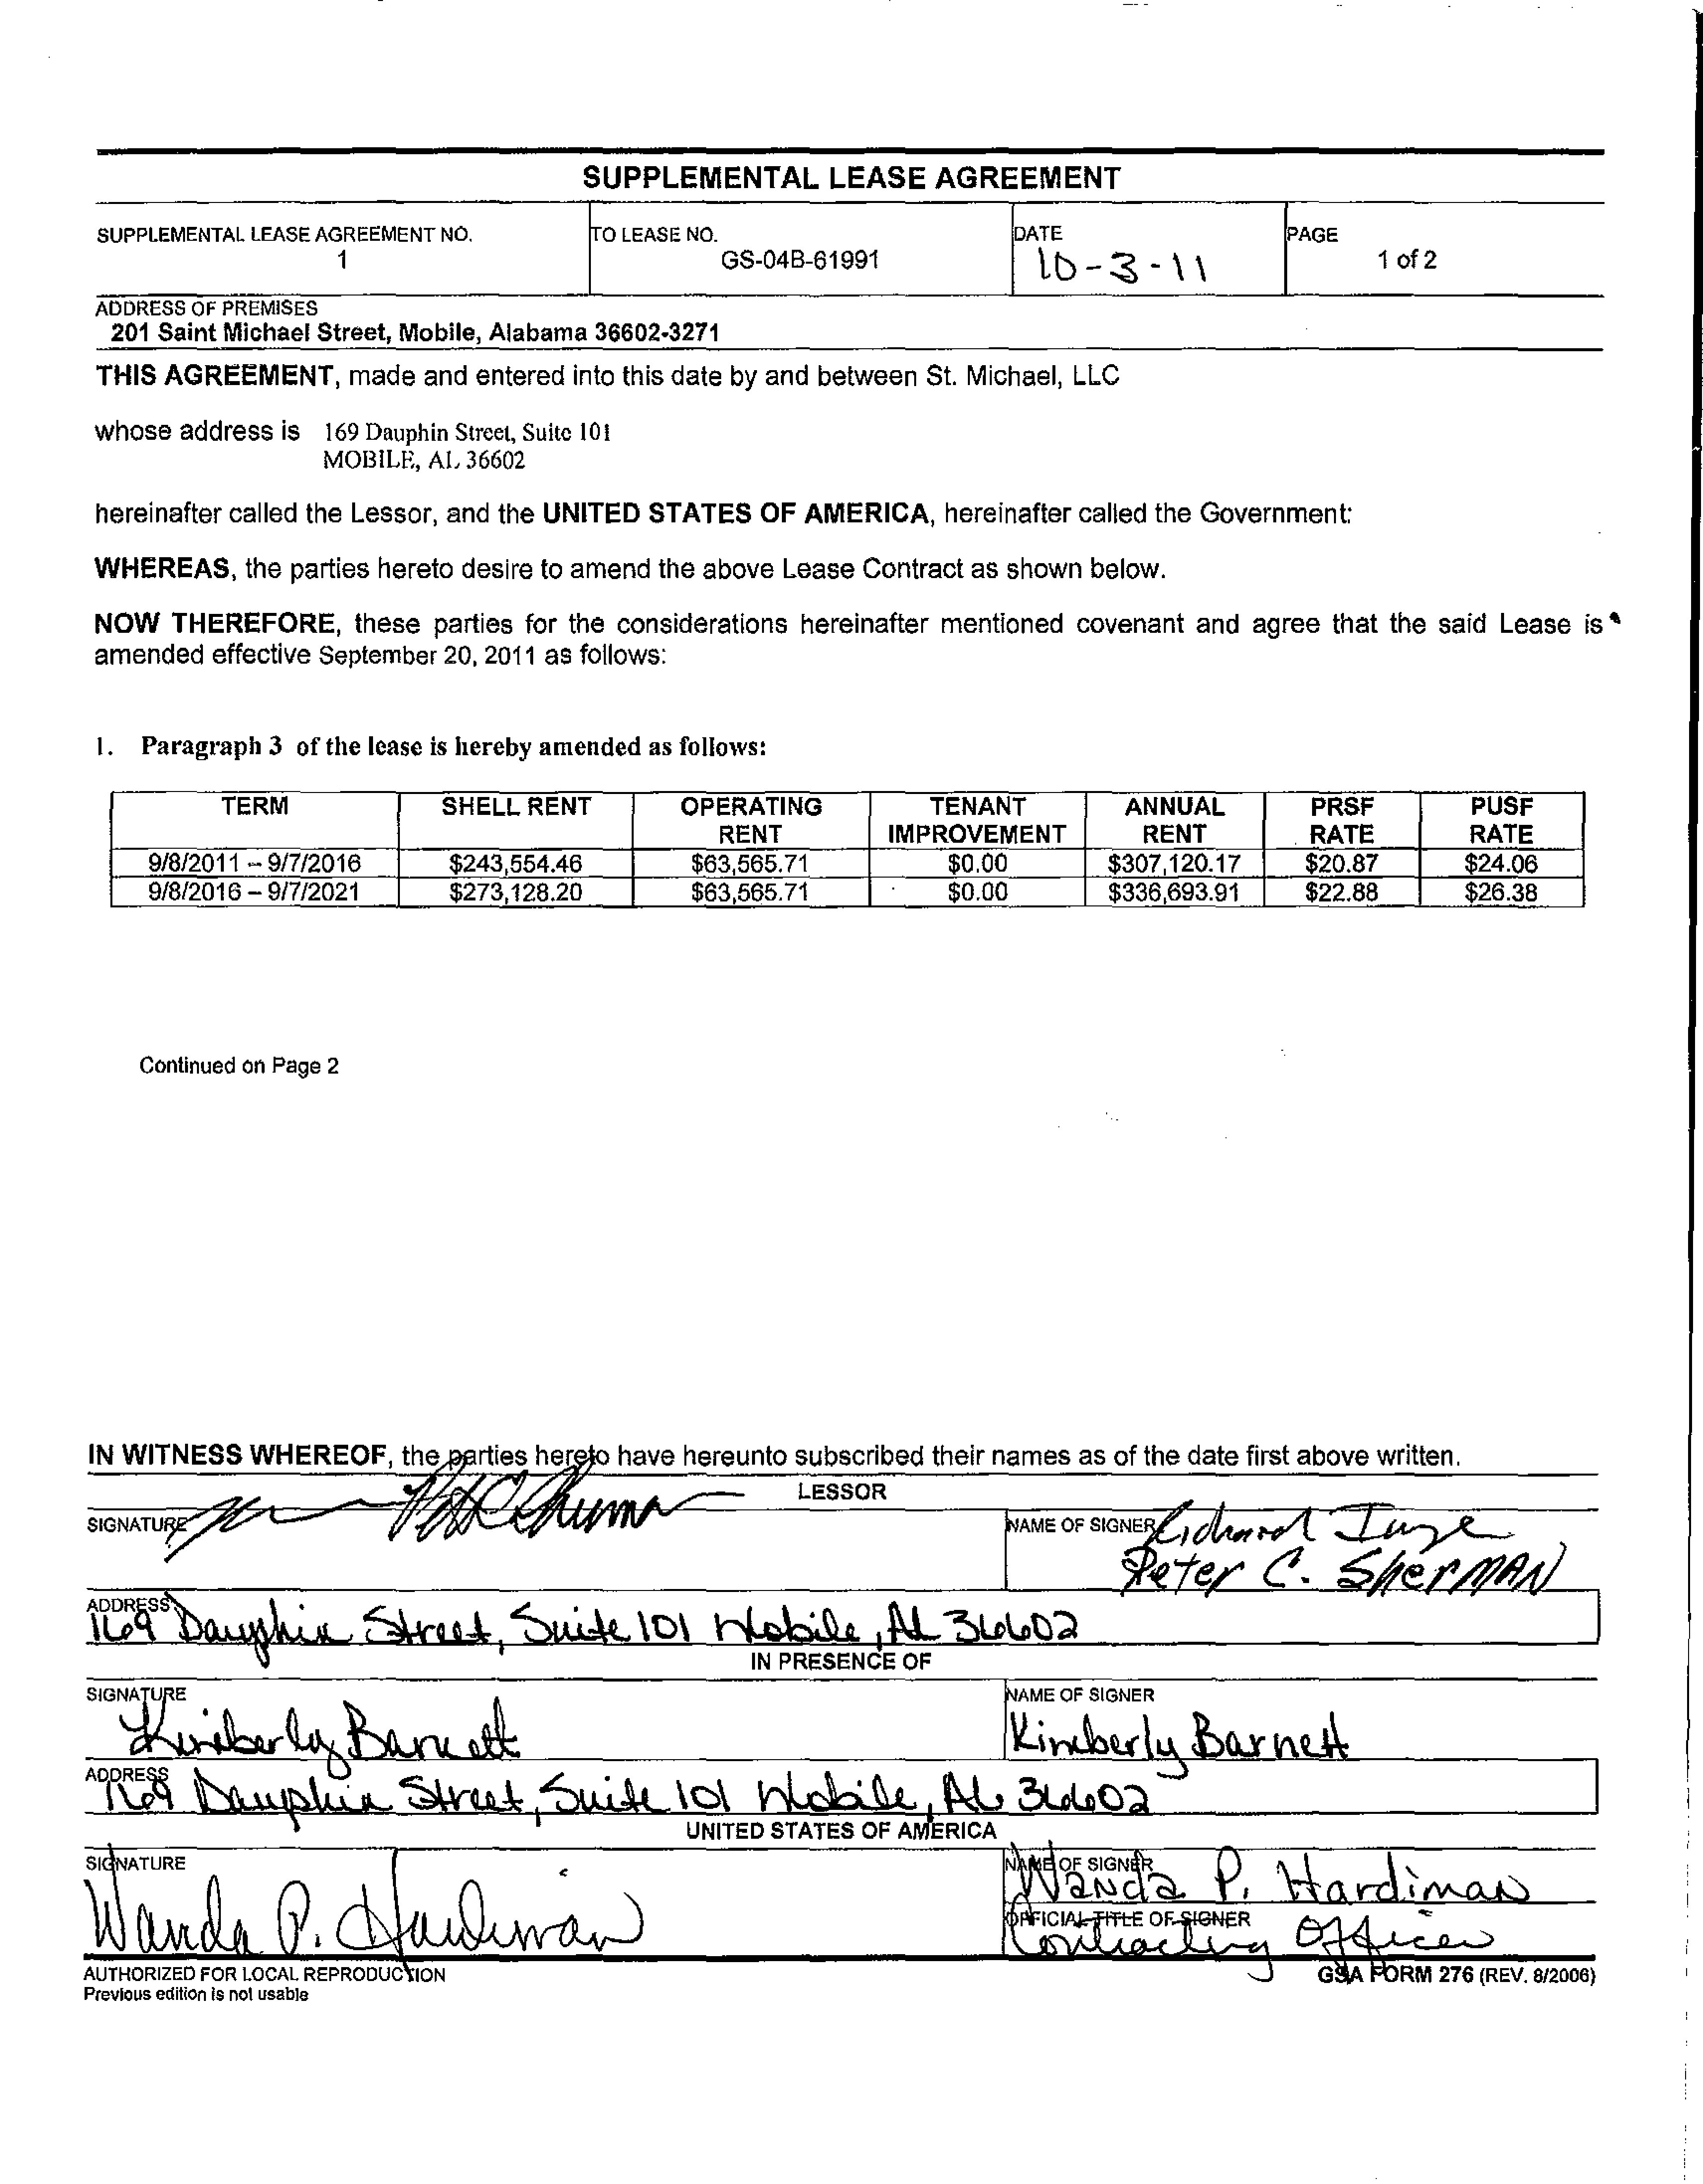 SUPPLEMENTAL LEASE AGREEMENT
SUPPLEMENTAL LEASE AGREEMENT NO. TO LEASE NO. DATE PAGE
1 GS-04B-61991 10-3-11 1 of 2
ADDRESS OF PREMISES
201 Saint Michael Street, Mobile, Alabama 36602-3271
THIS AGREEMENT, made and entered into this date by and between St. Michael, LLC
whose address is 169 Dauphin Street, Suite 101
MOBILE, AL 36602
hereinafter called the Lessor, and the UNITED STATES OF AMERICA, hereinafter called the Government:
WHEREAS, the parties hereto desire to amend the above Lease Contract as shown below.
NOW THEREFORE, these parties for the considerations hereinafter mentioned covenant and agree that the said Lease is
amended effective September 20, 2011 as follows:
1. Paragraph 3 of the lease is hereby amended as follows:
TERM SHELL RENT OPERATING TENANT ANNUAL PRSF PUSF
RENT IMPROVEMENT RENT RATE RATE
9/8/2011 – 9/7/2016 $243,554.46 $63,565.71 $0.00 $307,120.17 $20.87 $24.06
9/8/2016 – 9/7/2021 $273,128.20 $63,565.71 $0.00 $336,693.91 $22.88 $26.38
Continued on Page 2
IN WITNESS WHEREOF, the parties hereto have hereunto subscribed their names as of the date first above written.
LESSOR
SIGNATURE NAME OF SIGNER Richard Inge
Peter C. Sherman
ADDRESS
169 Dauphin Street, Suite 101 Mobile, AL 36602
IN PRESENCE OF
SIGNATURE NAME OF SIGNER
Kimberly Barnett Kimberly Barnett
ADDRESS
169 Dauphin Street, Suite 101 Mobile, AL 36602
UNITED STATES OF AMERICA
SIGNATURE NAME OF SIGNER
Wanda P. Hardiman Wanda P. Hardiman
OFFICIAL TITLE OF SIGNER
Contracting Officer
AUTHORIZED FOR LOCAL REPRODUCTION GSA FORM 276 (REV. 8/2006)
Previous edition is not usable